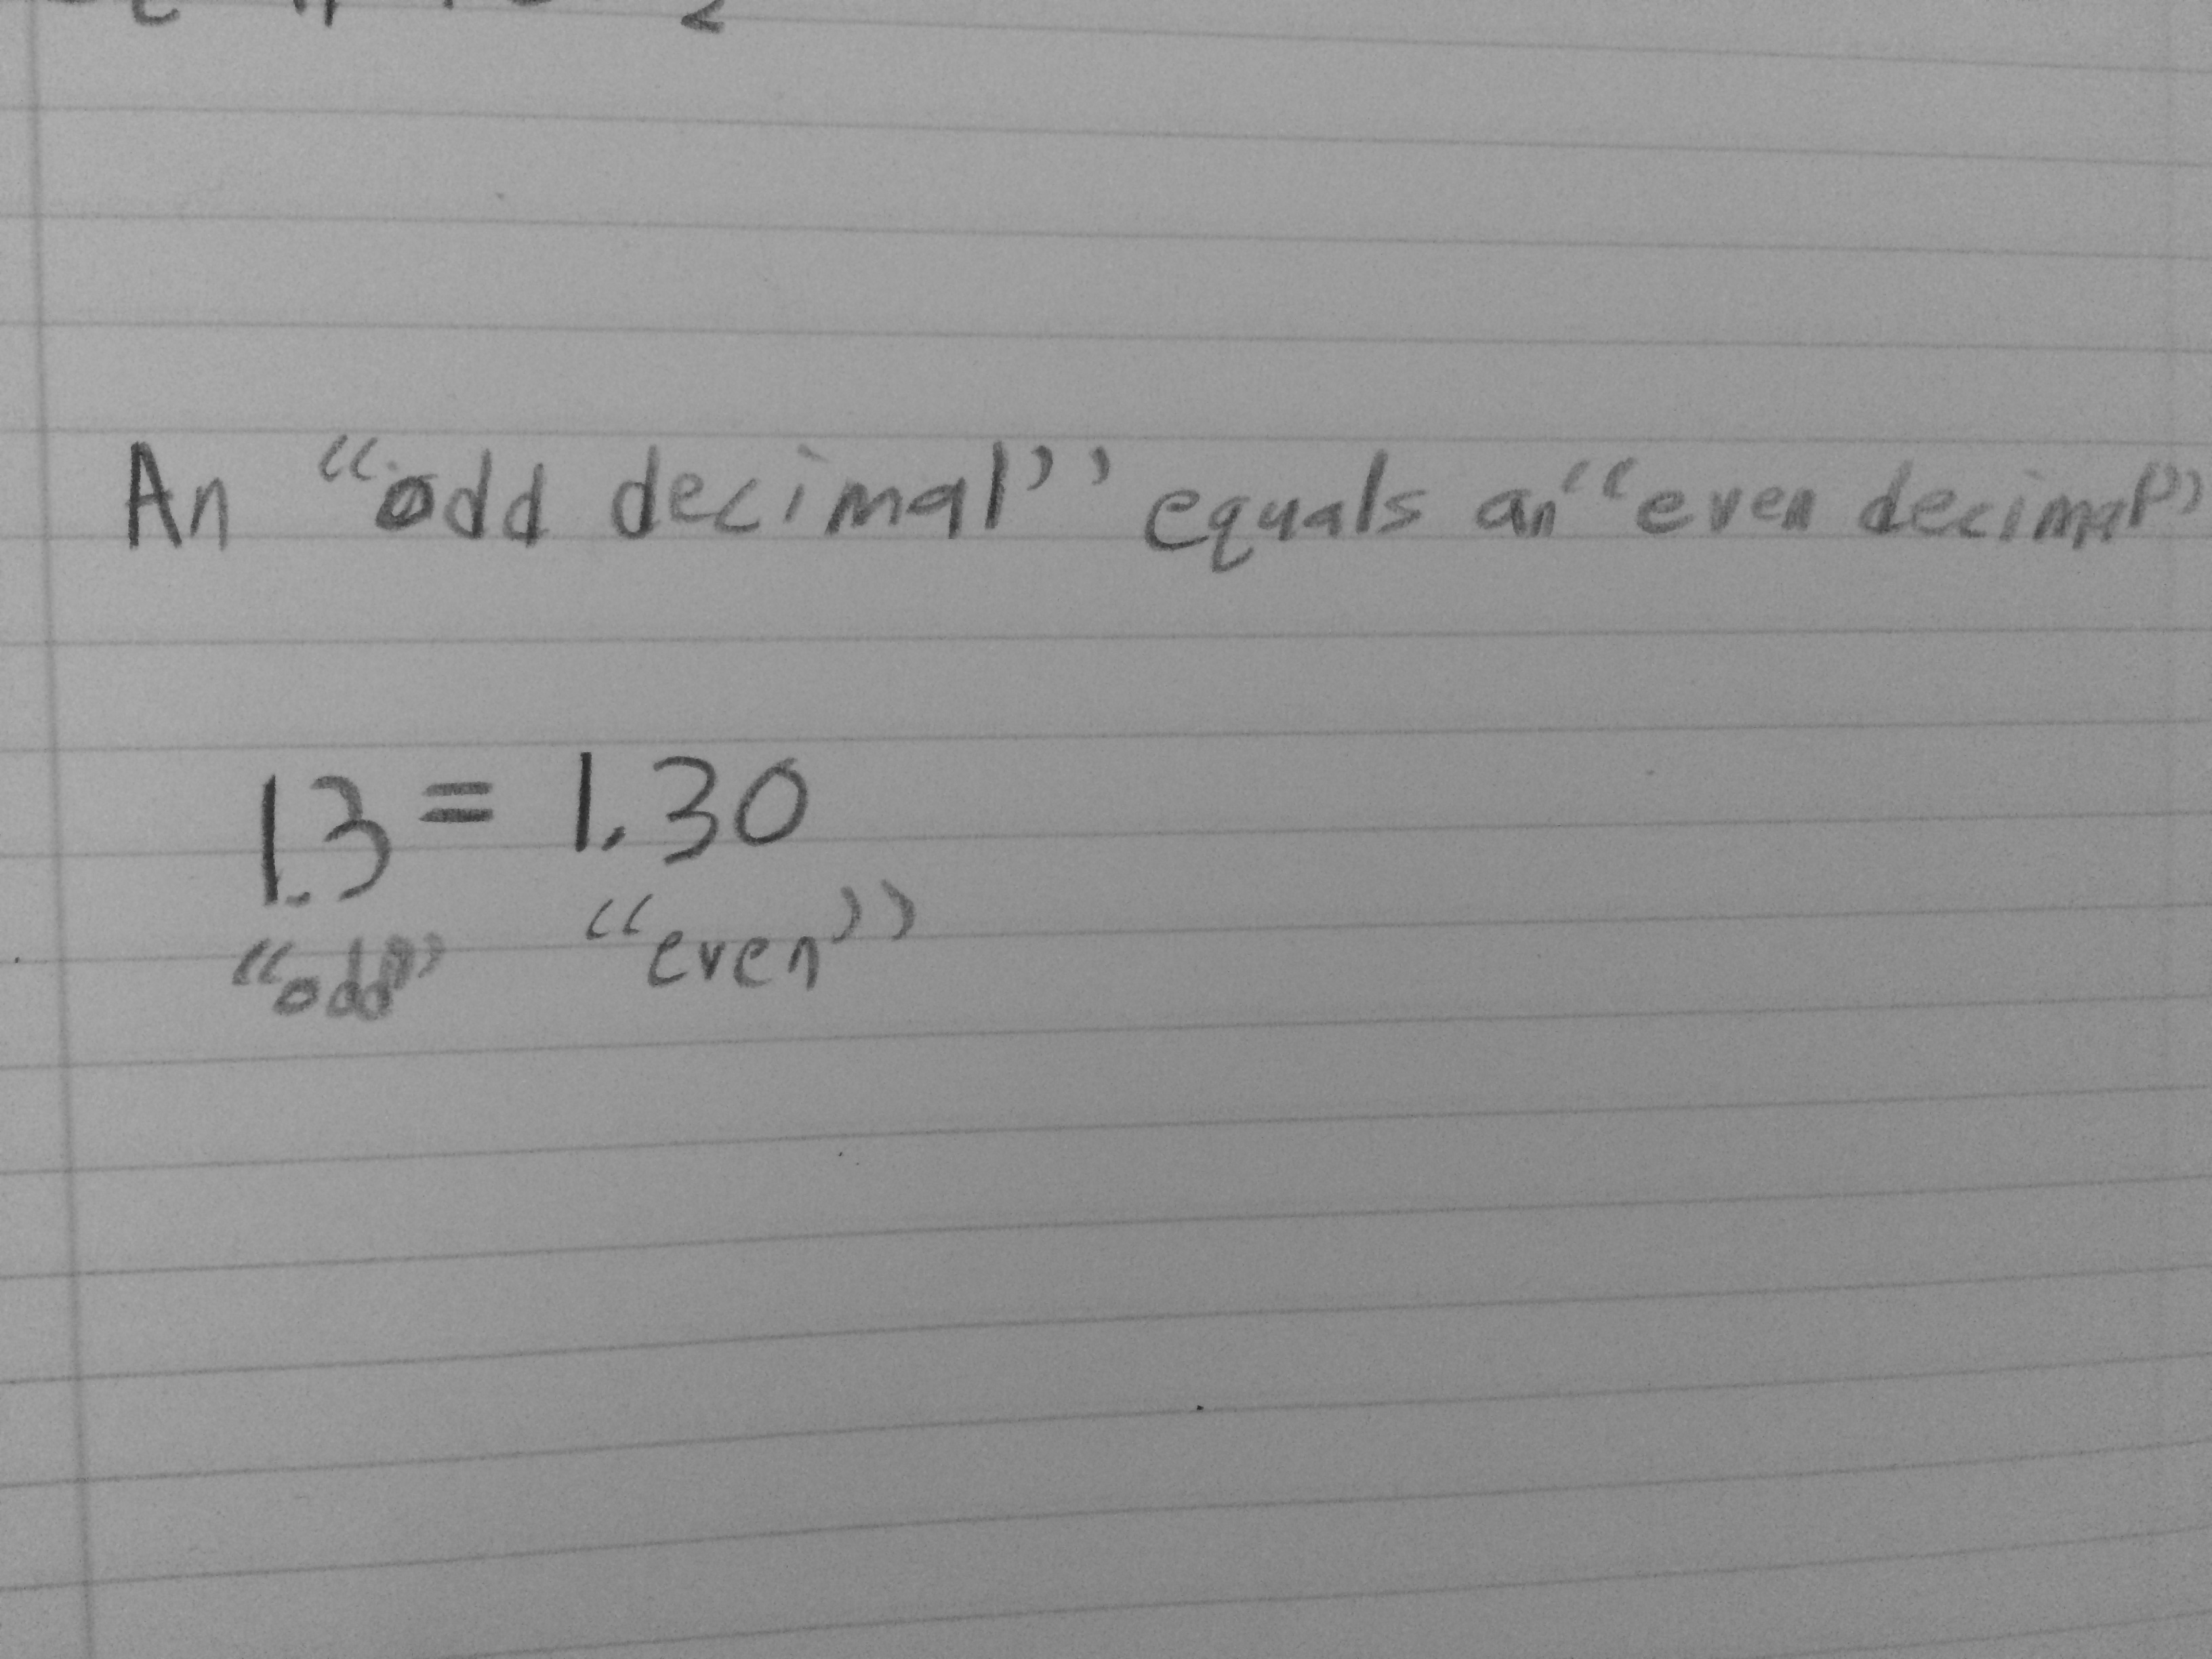 An “odd decimal” equals an “even decimal”
1.3 = 1.30
“odd” “even”